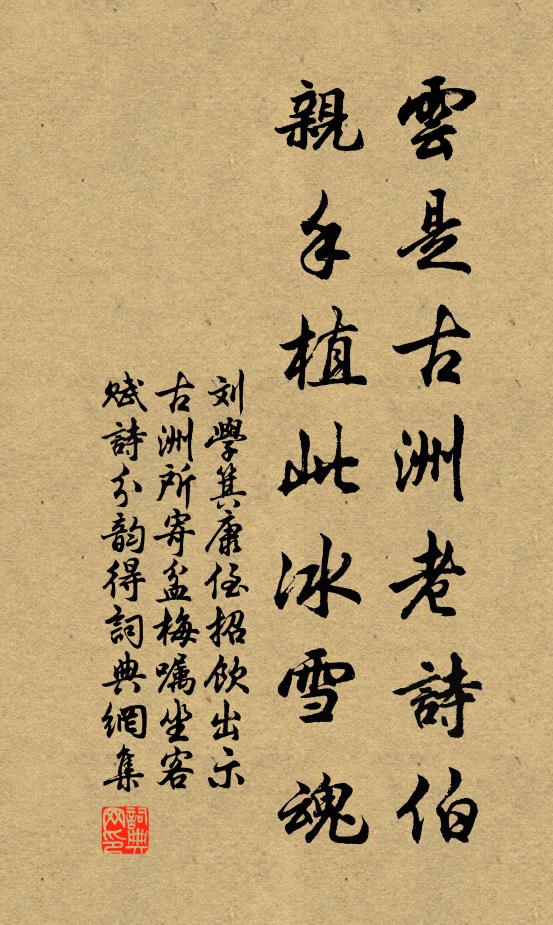 雲是古洲老詩伯
親手植此冰雪魂
刘學箕康侄招飲出示
古洲所寄盆梅嘱坐客
賦詩分韵得詞典網集
詞典网印